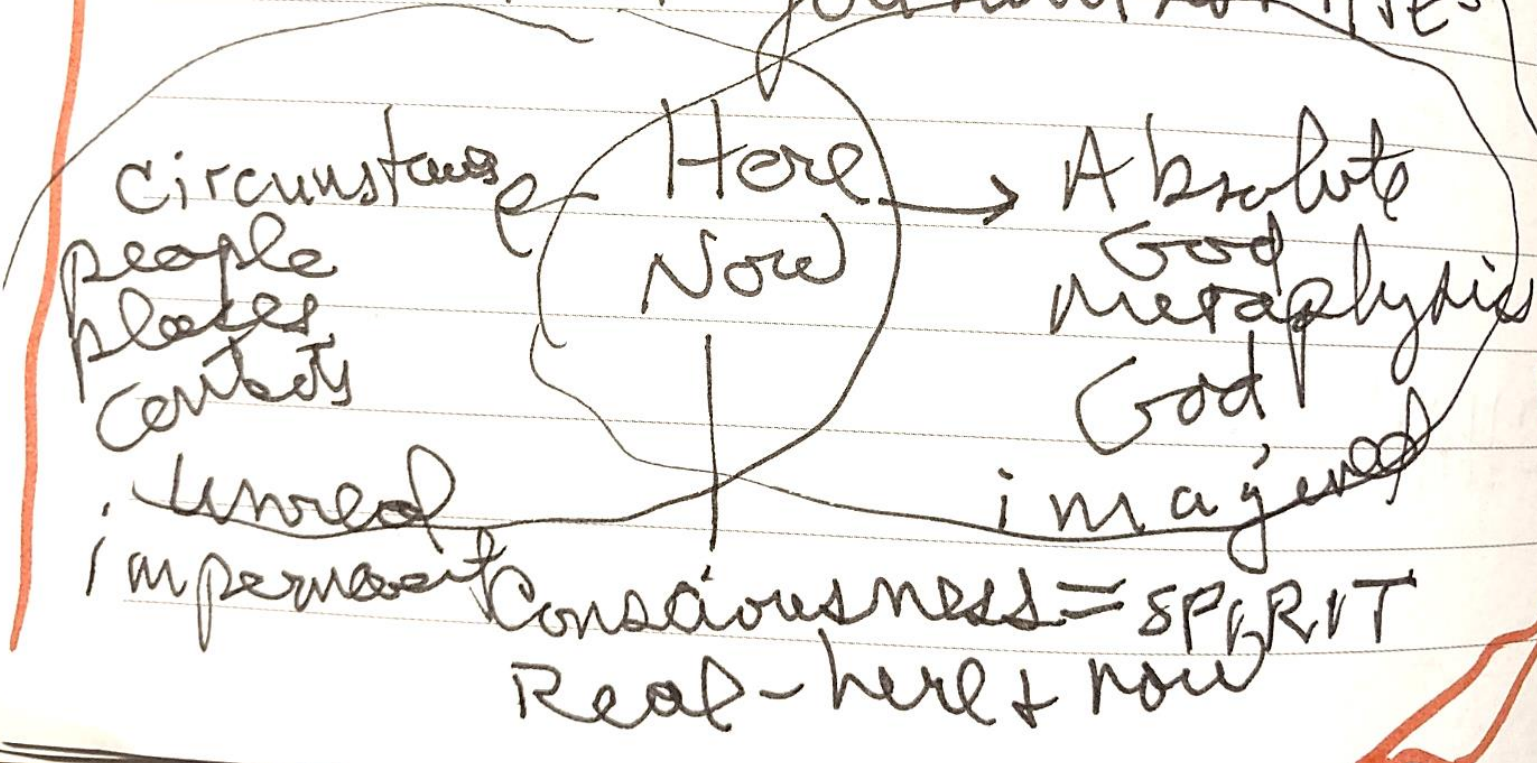 Here
Now
Circumstances
people
places
contacts
Unreal
impermanent
Absolute
God
Metaphysics
God
imagined
Consciousness = SPIRIT
Real - here + now